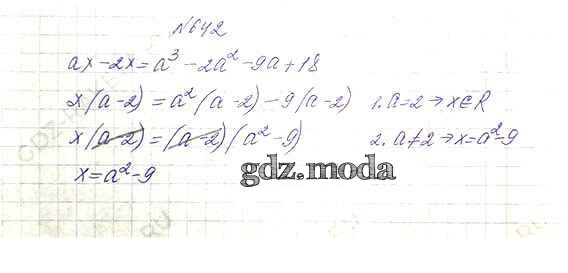 №642
ax - 2x = a³ - 2a² - 9a + 18
x(a-2) = a²(a-2) - 9(a-2) 1. a=2 → x∈R
x(a-2) = (a-2)(a²-9) 2. a≠2 → x=a²-9
x = a² - 9
gdz.moda